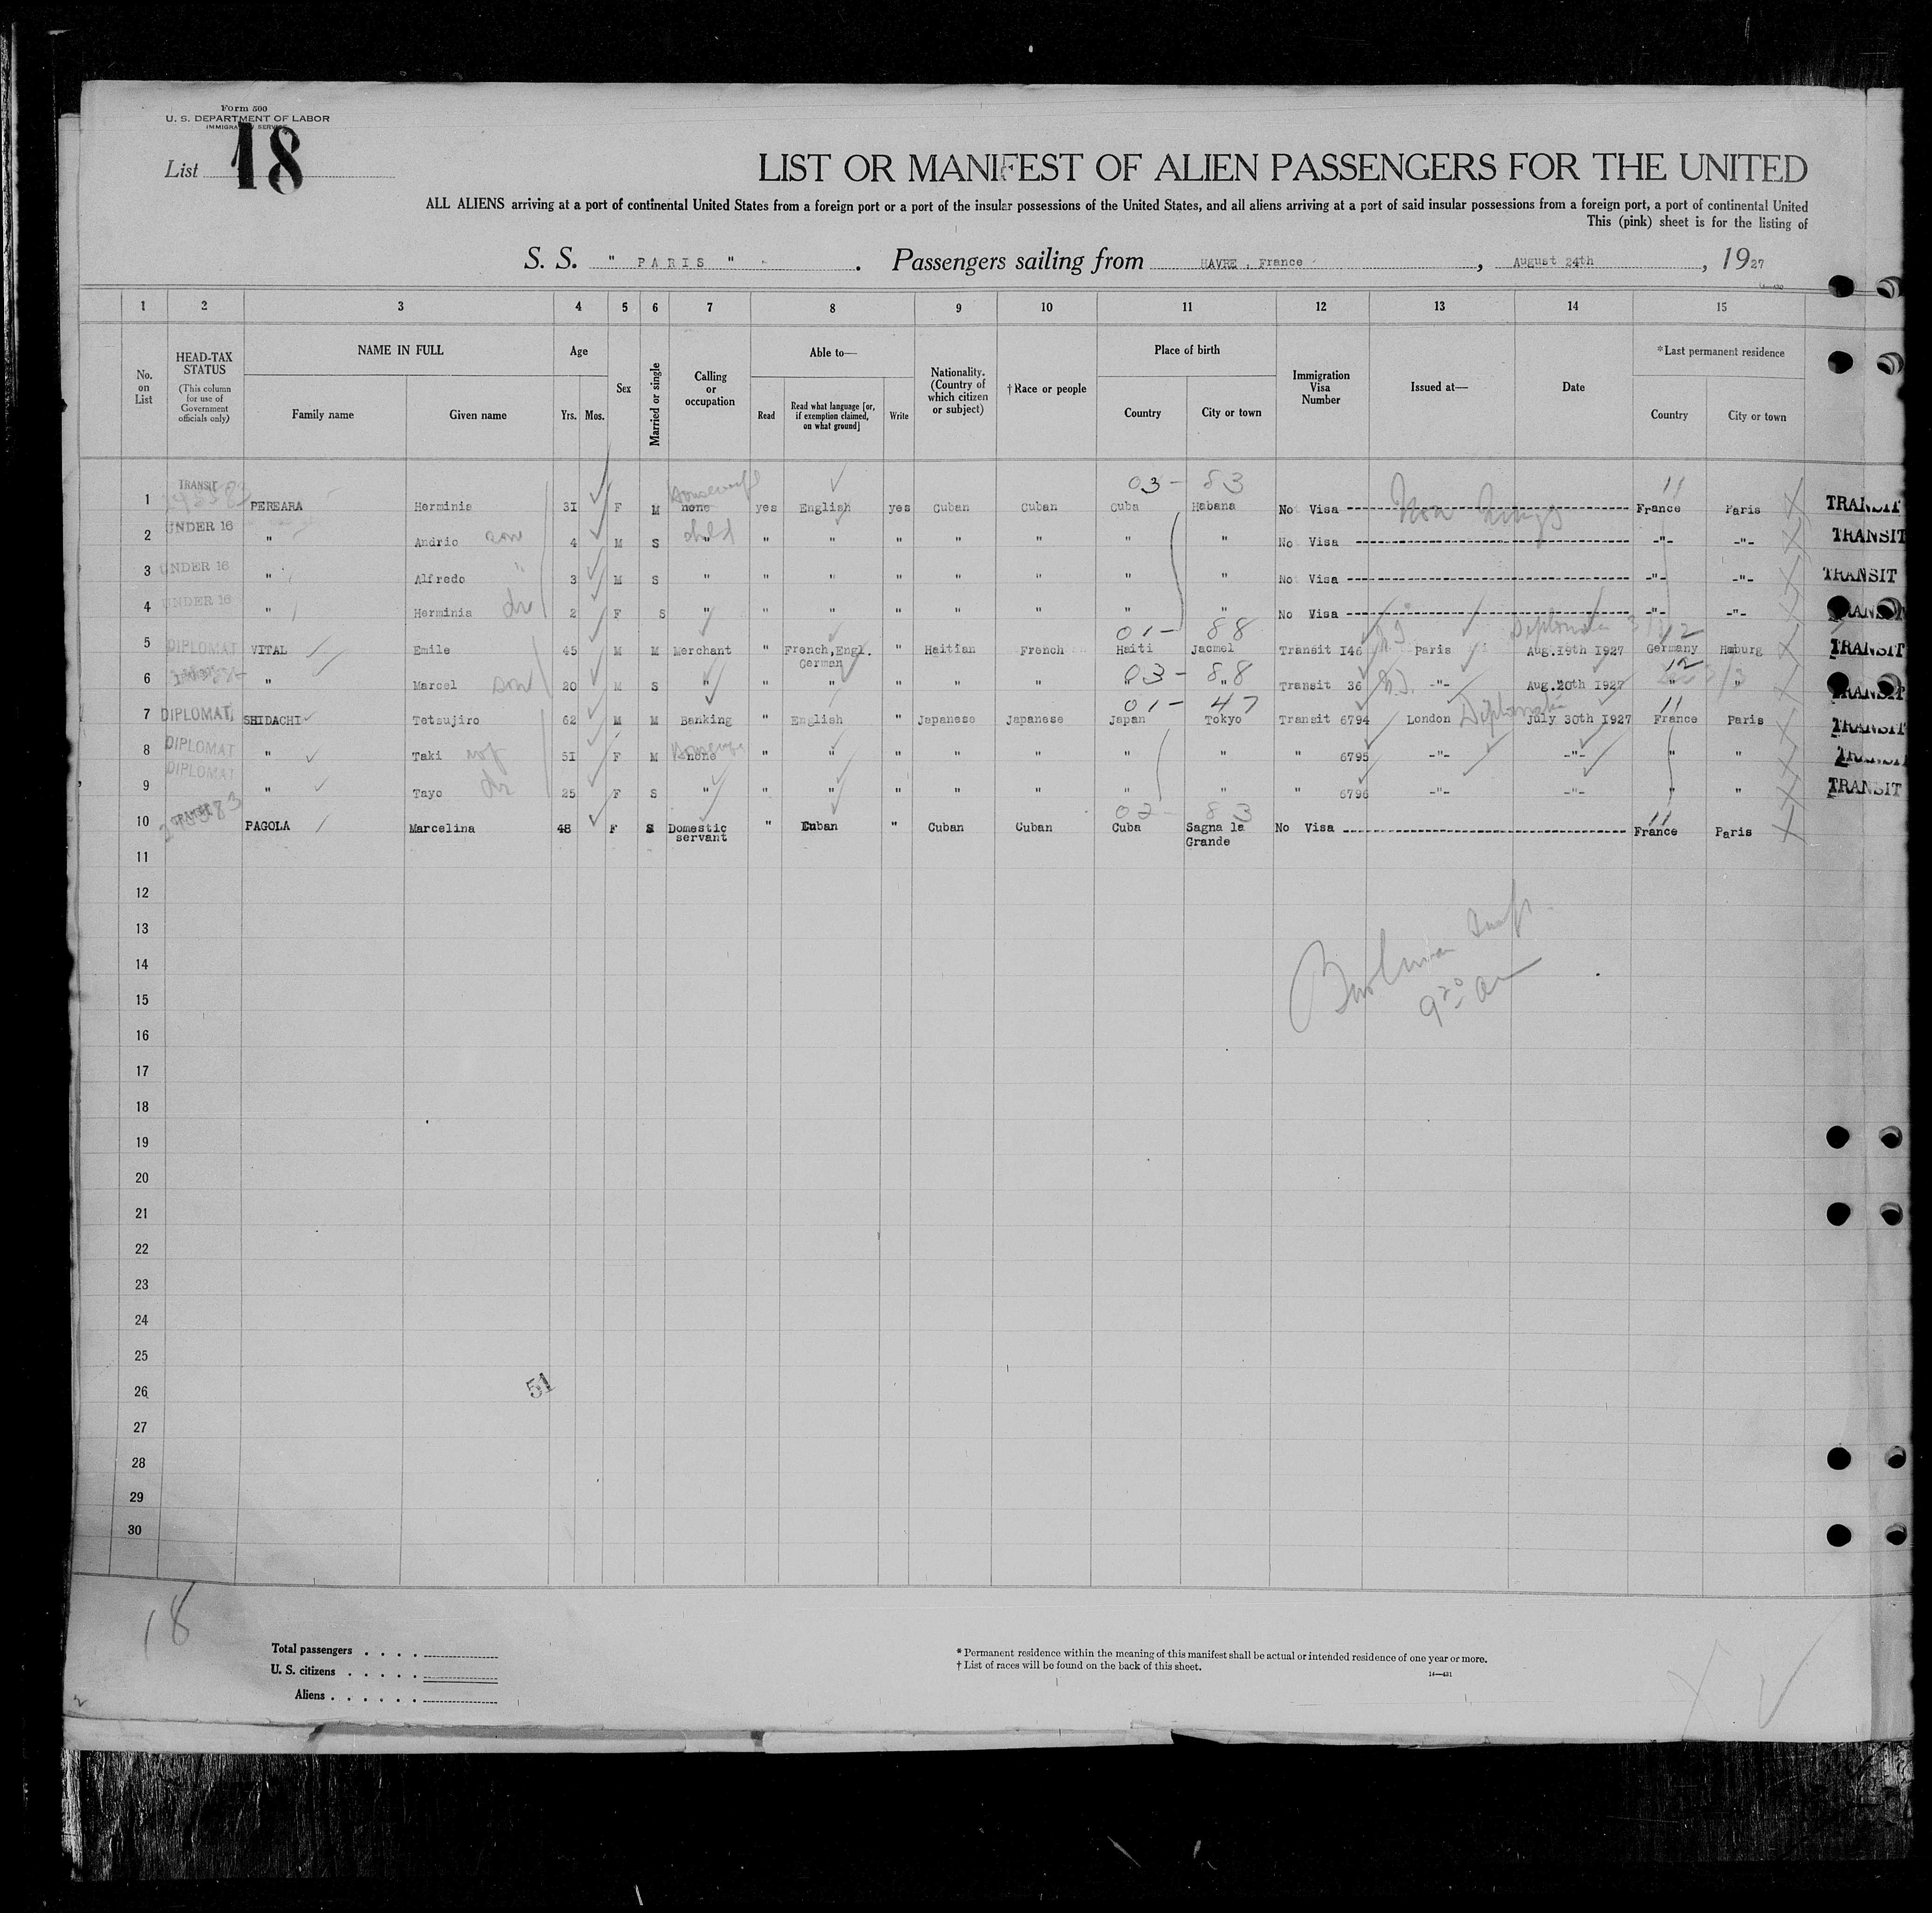 Form 500
U. S. DEPARTMENT OF LABOR
IMMIGRATION SERVICE
List 18
LIST OR MANIFEST OF ALIEN PASSENGERS FOR THE UNITED
ALL ALIENS arriving at a port of continental United States from a foreign port or a port of the insular possessions of the United States, and all aliens arriving at a port of said insular possessions from a foreign port, a port of continental United
This (pink) sheet is for the listing of
S. S. " PARIS " . Passengers sailing from HAVRE , France , August 24th , 1927
1 2 3 4 5 6 7 8 9 10 11 12 13 14 15
No. on List
HEAD-TAX STATUS
(This column for use of Government officials only)
NAME IN FULL
Family name Given name
Age
Yrs. Mos.
Sex
Married or single
Calling or occupation
Able to—
Read
Read what language [or, if exemption claimed, on what ground]
Write
Nationality. (Country of which citizen or subject)
†Race or people
Place of birth
Country City or town
Immigration Visa Number
Issued at—
Date
*Last permanent residence
Country City or town
03- 83 11
1 TRANSIT PEREARA Herminia 31 F M housewife none yes English yes Cuban Cuban Cuba Habana No Visa France Paris TRANSIT
2 UNDER 16 " Andrio son 4 M S child " " " " " " " " No Visa -"- -"- TRANSIT
3 UNDER 16 " Alfredo " 3 M S " " " " " " " " No Visa -"- -"- TRANSIT
4 UNDER 16 " Herminia 2 F S " " " " " " " " No Visa -"- -"- TRANSIT
01- 88 12
5 DIPLOMAT VITAL Emile 45 M M Merchant " French,Engl. German " Haitian French Haiti Jacmel Transit I46 Paris Aug.19th 1927 Germany Hamburg TRANSIT
03- 88 12
6 " Marcel son 20 M S " " " " " " " " Transit 36 -"- Aug.20th 1927 " " TRANSIT
01- 47 11
7 DIPLOMAT SHIDACHI Tetsujiro 62 M M Banking " English " Japanese Japanese Japan Tokyo Transit 6794 London July 30th 1927 France Paris TRANSIT
8 DIPLOMAT " Taki 51 F M none " " " " " " " " 6795 -"- -"- " " TRANSIT
9 DIPLOMAT " Tayo 25 F S " " " " " " " " " 6796 -"- -"- " " TRANSIT
83 11
10 TRANSIT PAGOLA Marcelina 48 F S Domestic servant " Cuban " Cuban Cuban Cuba Sagna la Grande No Visa France Paris
11
12
13
14
15
16
17
18
19
20
21
22
23
24
25
26
51
27
28
29
30
18
Total passengers . . . .
U. S. citizens . . . . .
Aliens . . . . . .
* Permanent residence within the meaning of this manifest shall be actual or intended residence of one year or more.
† List of races will be found on the back of this sheet.
14—431